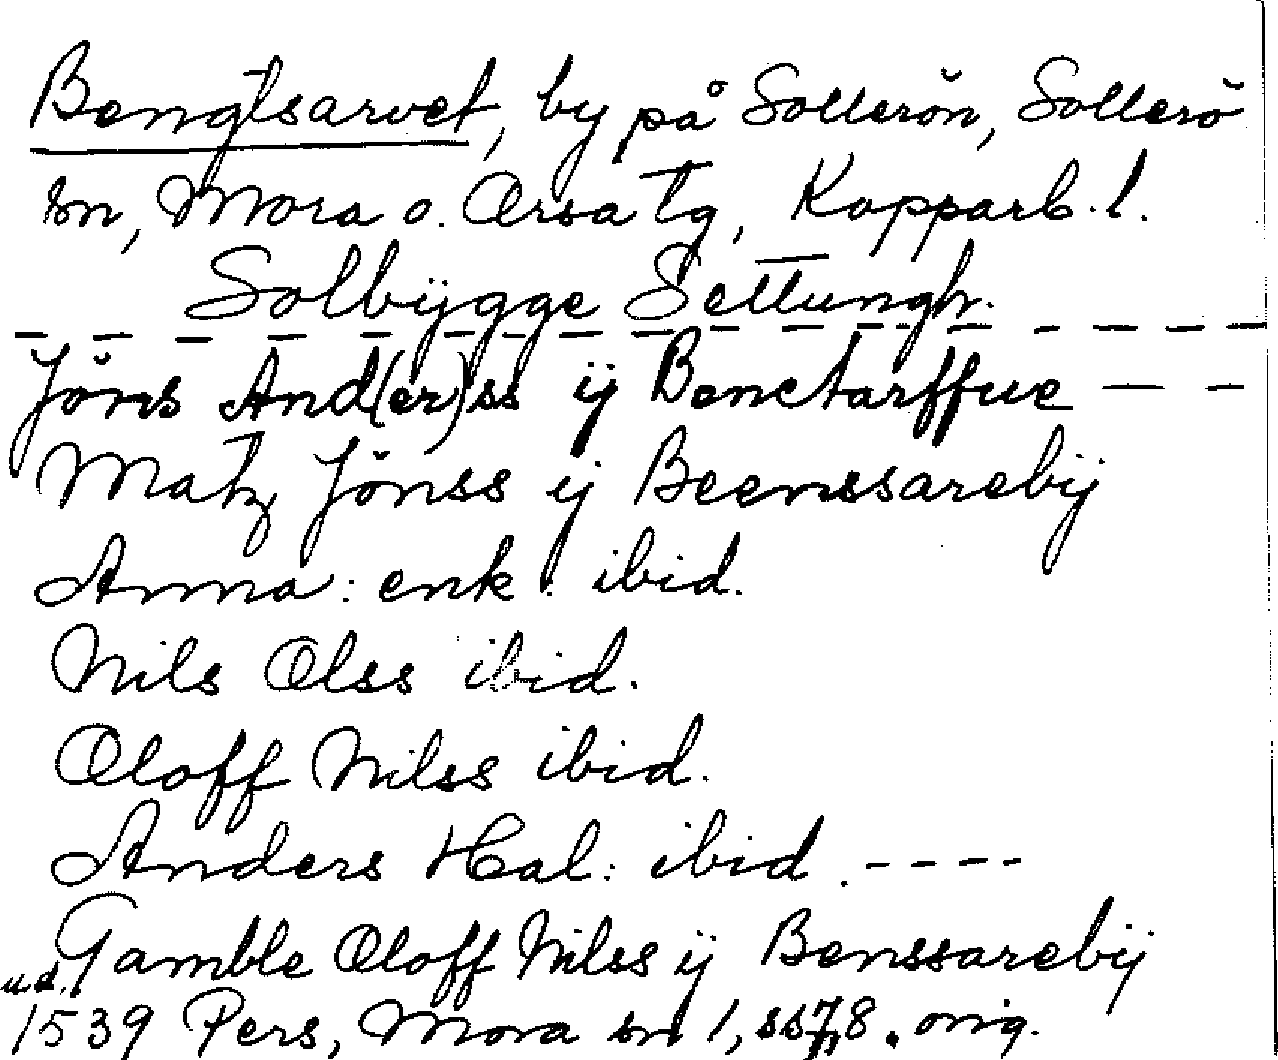 Bengtsarvet, by på Sollerön, Sollerö
sn, Mora o. Orsa tg, Kopparb. l.
Solbÿgge Settungh.
Jöns And(er)ss ÿ Benctarffue — –
Matz Jönss ÿ Beenssarebÿ
Anna: enk: ibid.
Nils Olss ibid.
Oloff Nilss ibid.
Anders Hal: ibid. ----
Gamble Oloff Nilss ÿ Benssarebÿ
u.d.
1539 Pers, Mora sn 1, ss 7, 8. orig.